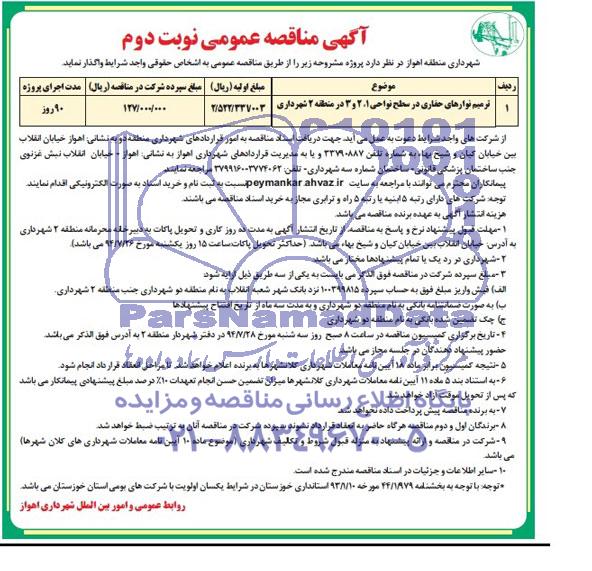 آگهی مناقصه عمومی نوبت دوم
شهرداری منطقه اهواز در نظر دارد پروژه مشروحه زیر را از طریق مناقصه عمومی به اشخاص حقوقی واجد شرایط واگذار نماید.
ردیف موضوع مبلغ اولیه (ریال) مبلغ سپرده شرکت در مناقصه (ریال) مدت اجرای پروژه
۱ ترمیم نوارهای حفاری در سطح نواحی ۱، ۲ و ۳ در منطقه ۲ شهرداری ۲/۵۲۲/۳۳۷/۰۰۳ ۱۲۷/۰۰۰/۰۰۰ ۹۰ روز
از شرکت های واجد شرایط دعوت به عمل می آید، جهت دریافت اسناد مناقصه به امور قراردادهای شهرداری منطقه دو به نشانی: اهواز خیابان انقلاب
بین خیابان کیان و شیخ بهاء به شماره تلفن ۳۳۷۹۰۸۸۷ و یا به مدیریت قراردادهای شهرداری اهواز به نشانی: اهواز - خیابان انقلاب نبش غزنوی
جنب ساختمان پزشکی قانونی - ساختمان شماره سه شهرداری - تلفن: ۳۷۷۴۰۶۲-۳۷۹۹۱۶۰۰ مراجعه نمایند.
پیمانکاران محترم می توانند با مراجعه به سایت peymankar.ahvaz.ir نسبت به ثبت نام و خرید اسناد به صورت الکترونیکی اقدام نمایند.
توجه: شرکت های دارای رتبه ۵ ابنیه یا رتبه ۵ راه و ترابری مجاز به خرید اسناد مناقصه می باشند.
هزینه انتشار آگهی به عهده برنده مناقصه می باشد.
۱-مهلت قبول پیشنهاد نرخ و پاسخ به مناقصه، از تاریخ انتشار آگهی به مدت ده روز کاری و تحویل پاکات به دبیرخانه محرمانه منطقه ۲ شهرداری
به آدرس: خیابان انقلاب بین خیابان کیان و شیخ بهاء می باشد. (حداکثر تحویل پاکات ساعت ۱۵ روز یکشنبه مورخ ۹۴/۷/۲۶ می باشد)
۲-شهرداری در رد یک یا تمام پیشنهادها مختار می باشد.
۳-مبلغ سپرده شرکت در مناقصه فوق الذکر می بایست به یکی از سه طریق ذیل ارایه شود:
الف) فیش واریز مبلغ فوق به حساب سپرده ۱۰۰۳۹۹۸۱۵ نزد بانک شهر شعبه انقلاب به نام منطقه دو شهرداری جنب منطقه ۲ شهرداری.
ب) به صورت ضمانتنامه بانکی به نام منطقه دو شهرداری و به مدت سه ماه از تاریخ افتتاح پیشنهادها
ج) چک تضمین شده بانکی به نام منطقه دو شهرداری
۴- تاریخ برگزاری کمیسیون مناقصه در ساعت ۸ صبح روز سه شنبه مورخ ۹۴/۷/۲۸ در دفتر شهردار منطقه ۲ به آدرس فوق الذکر می باشد.
حضور پیشنهاد دهندگان در جلسه مجاز می باشد.
۵-نتیجه کمیسیون برابر ماده ۱۸ آیین نامه معاملات شهرداری کلانشهرها به برنده اعلام خواهد شد تا مراحل انعقاد قرارداد انجام شود.
۶-به استناد بند ۵ ماده ۱۱ آیین نامه معاملات شهرداری کلانشهرها میزان تضمین حسن انجام تعهدات ۱۰٪ درصد مبلغ پیشنهادی پیمانکار می باشد
که پس از تحویل موقت آزاد خواهد شد.
۷-به برنده مناقصه پیش پرداخت داده نخواهد شد.
۸-برندگان اول و دوم مناقصه هرگاه حاضر به انعقاد قرارداد نشوند سپرده شرکت در مناقصه آنان به ترتیب ضبط خواهد شد.
۹-شرکت در مناقصه و ارائه پیشنهاد به منزله قبول شروط و تکالیف شهرداری (موضوع ماده ۱۰ آیین نامه معاملات شهرداری های کلان شهرها)
می باشد.
۱۰-سایر اطلاعات و جزئیات در اسناد مناقصه مندرج شده است.
*توجه: با توجه به بخشنامه ۴۴/۱/۹۷۹ مورخه ۹۳/۱/۱۰ استانداری خوزستان در شرایط یکسان اولویت با شرکت های بومی استان خوزستان می باشد.
روابط عمومی و امور بین الملل شهرداری اهواز
ParsNamadData
پایگاه اطلاع رسانی مناقصه و مزایده
۰۲۱-۸۸۳۴۹۶۷۰-۵